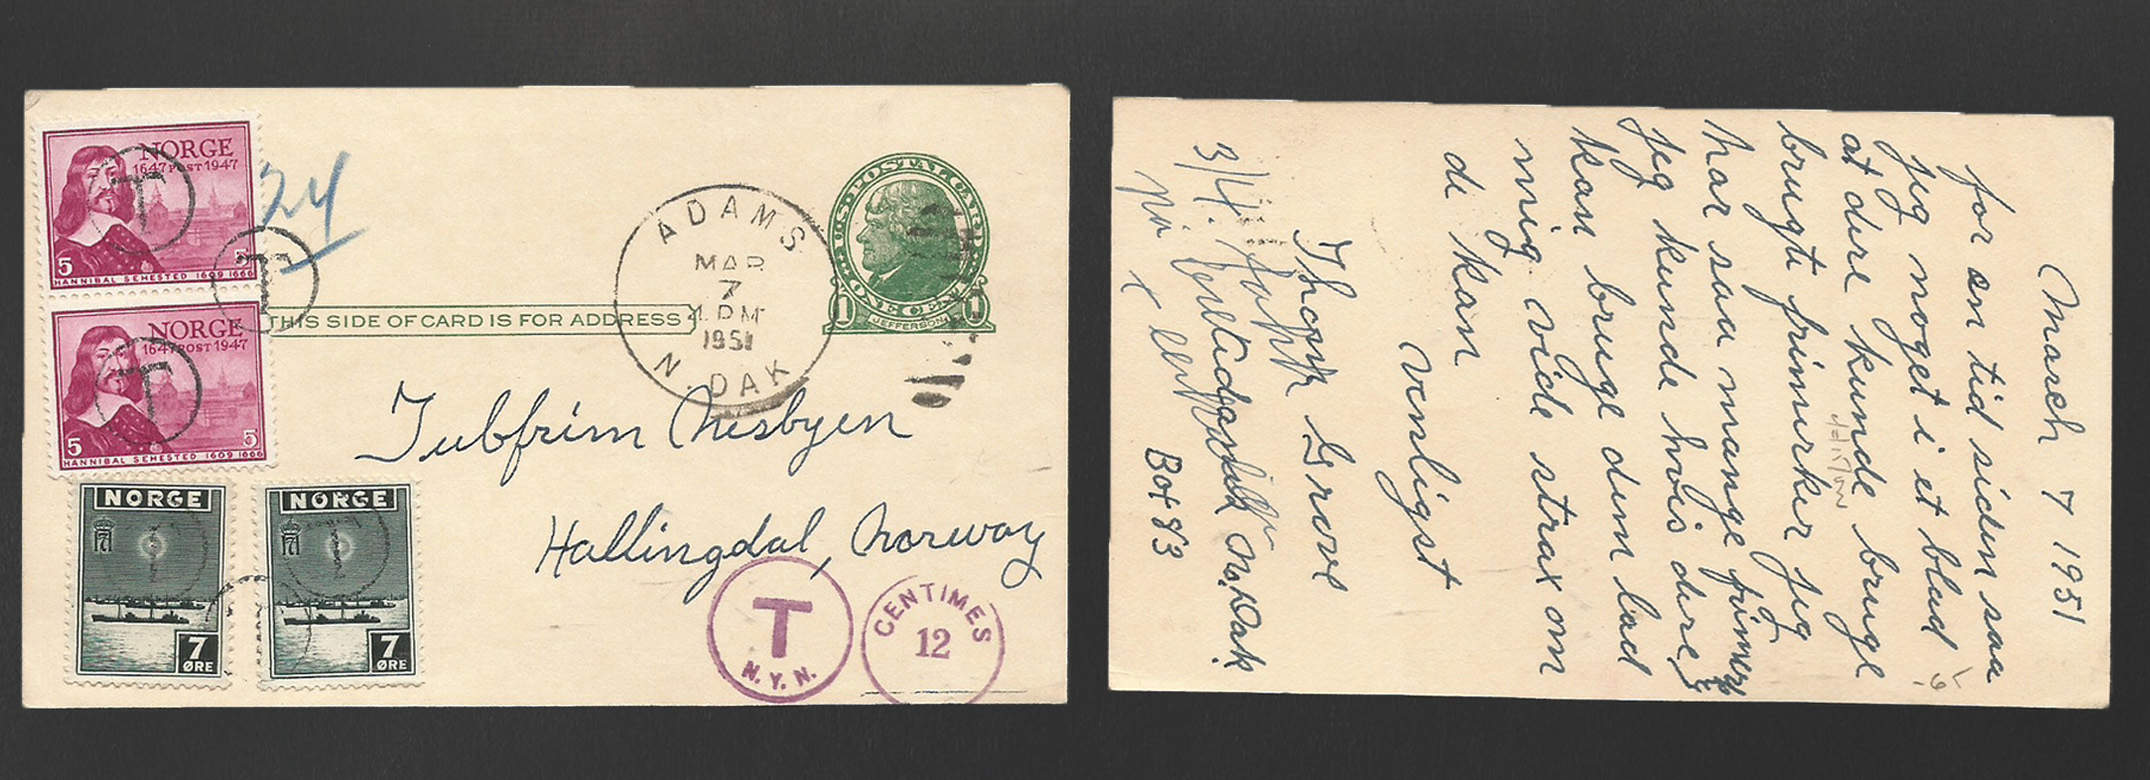 NORGE
1647 POST 1947
5
HANNIBAL SEHESTED 1609 1666
T
24
T
NORGE
1647 POST 1947
5
5
HANNIBAL SEHESTED 1609 1666
T
NORGE
7
ØRE
NORGE
7
ØRE
THIS SIDE OF CARD IS FOR ADDRESS
ADAMS
MAR
7
4 PM
1951
N. DAK
U.S. POSTAL CARD
1 ONE CENT 1
JEFFERSON
Nesbyen
Hallingdal, Norway
T
N.Y.N.
CENTIMES
12
March 7 1951
for en tid siden saa
jeg noget i et blad
at dere kunde bruge
brugte frimerker jeg
har saa mange frimerk
jeg kunde hvis dere
kan bruge dem lad
mig vide strax om
di kan
venligst
Grove
N. Dak
Box 83
3/4.